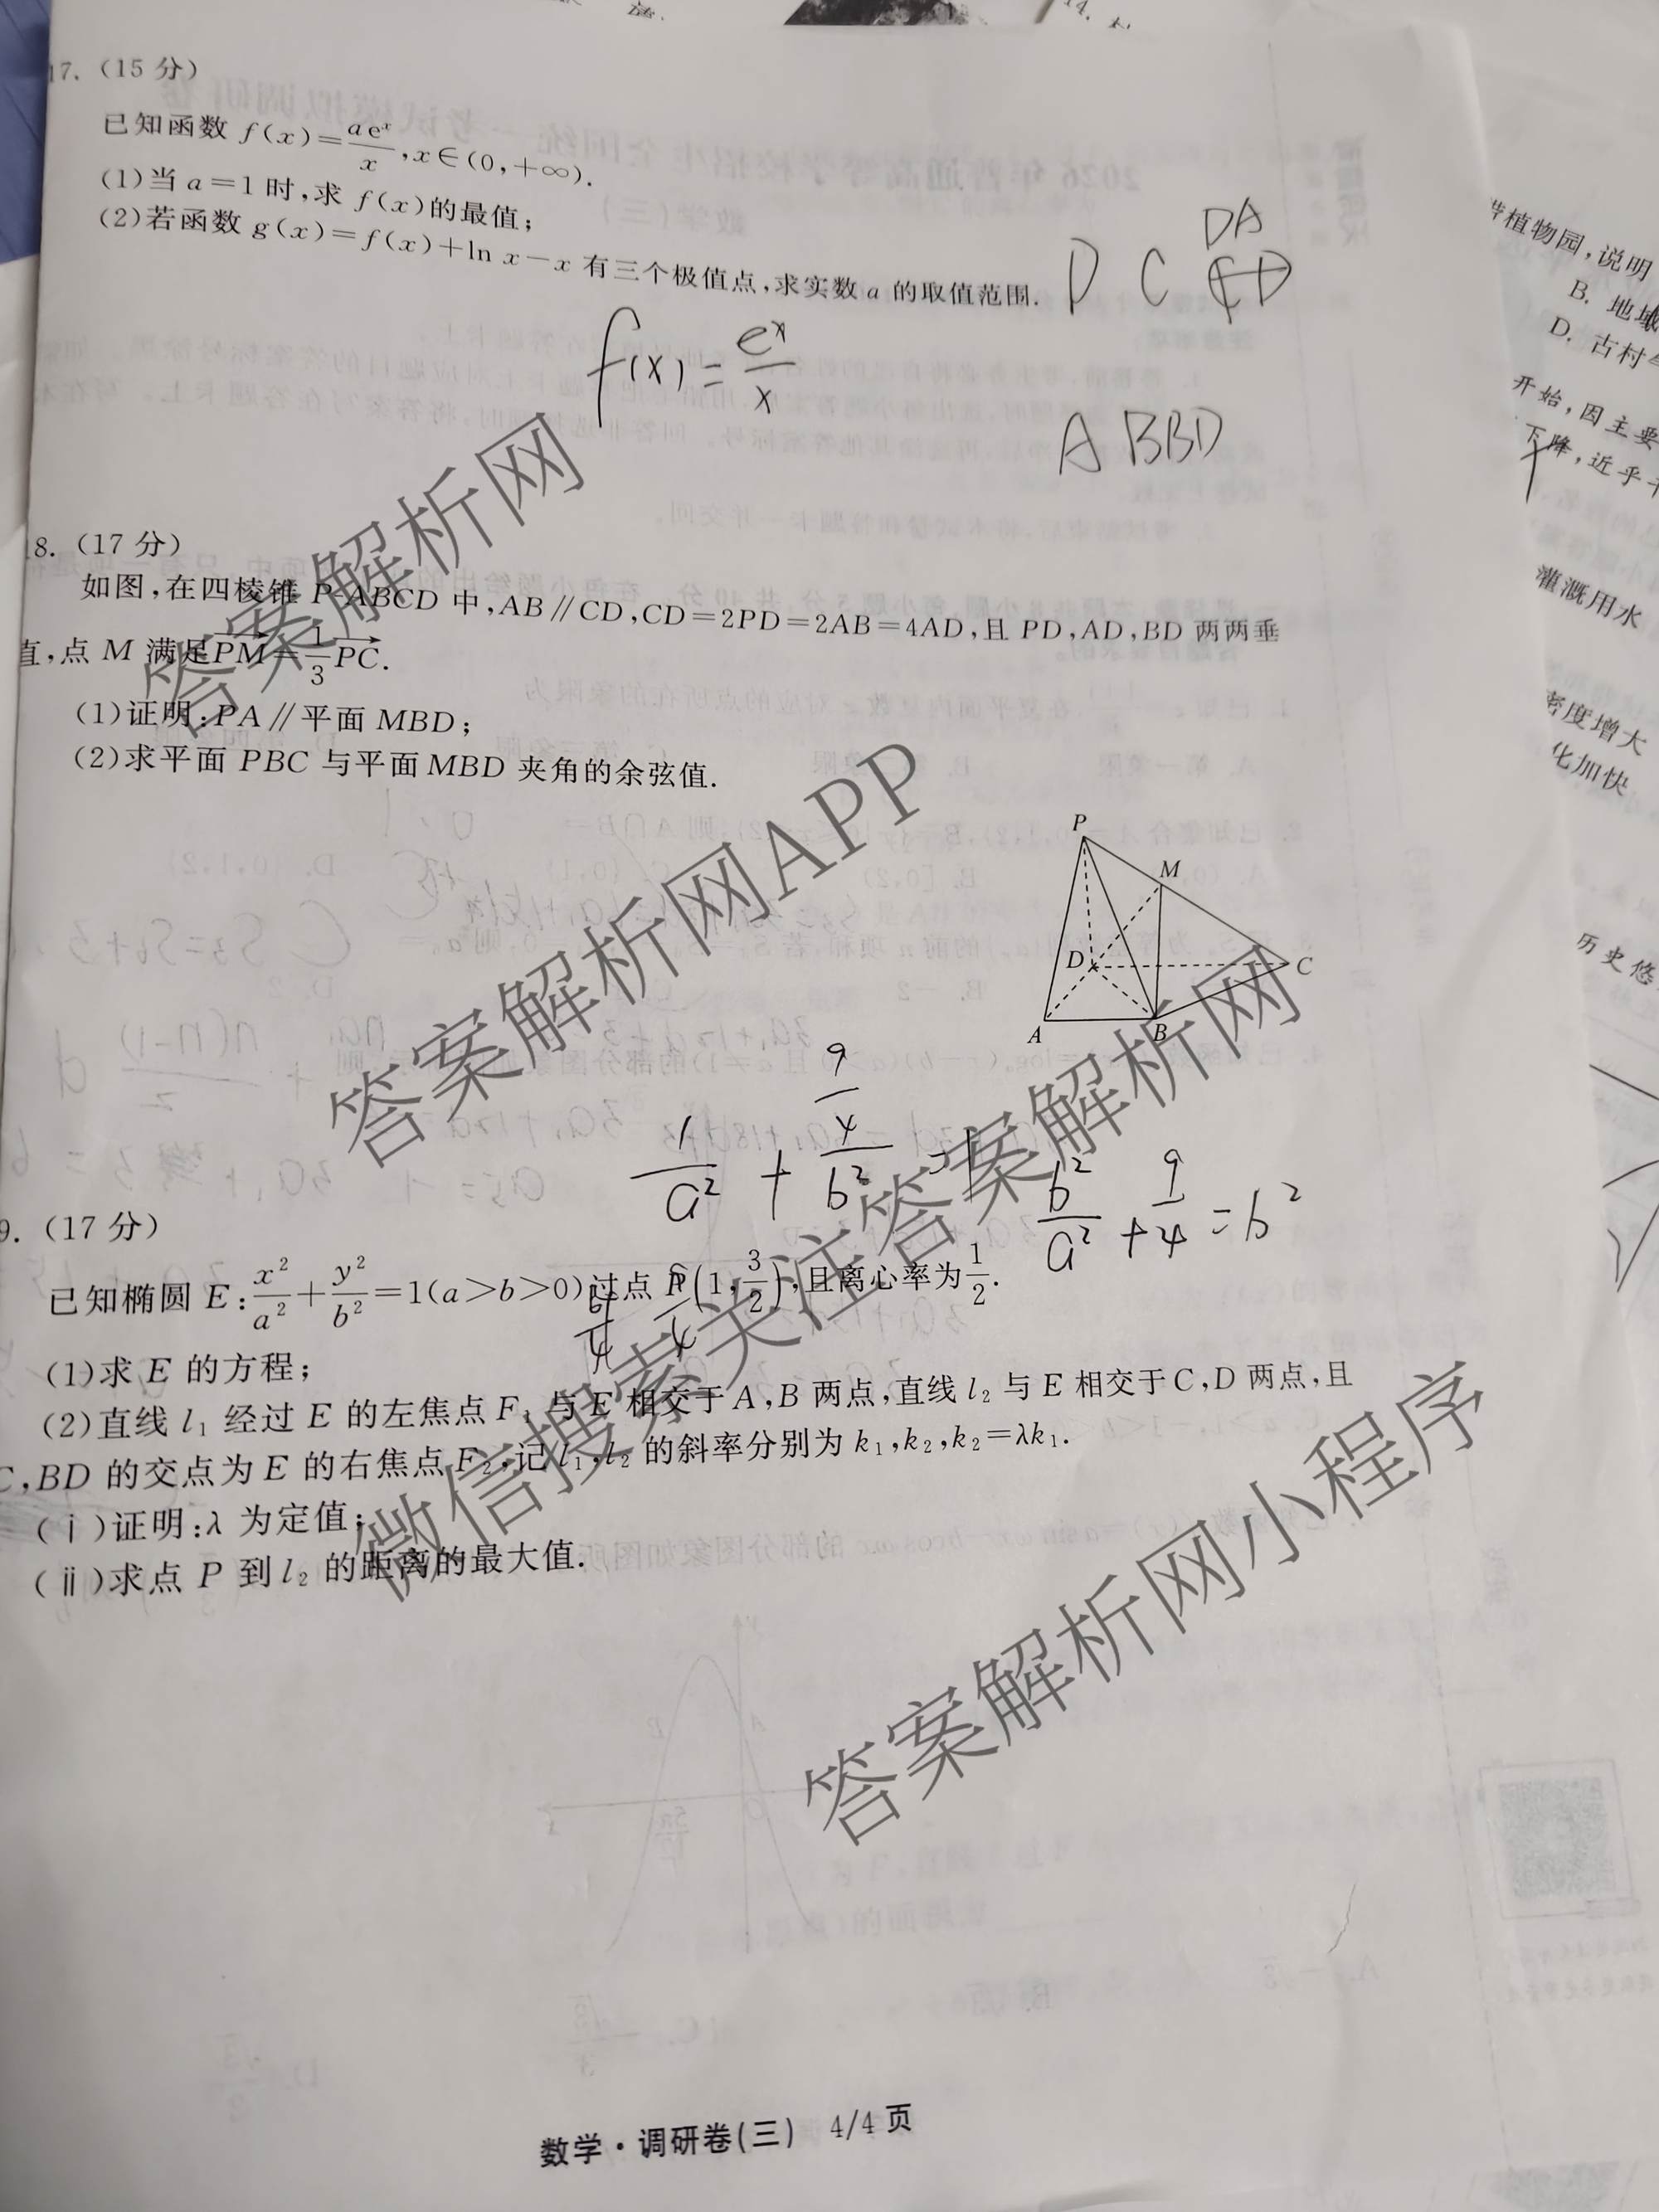 17.（15 分）
已知函数 f(x)=\frac{ae^x}{x},x∈(0,+∞).
(1)当 a=1 时,求 f(x)的最值;
(2)若函数 g(x)=f(x)+ln x-x 有三个极值点,求实数 a 的取值范围.
D C DA
CD
f(x)=\frac{e^x}{x}
A BBD
8.（17 分）
如图,在四棱锥 P-ABCD 中,AB∥CD,CD=2PD=2AB=4AD,且 PD,AD,BD 两两垂
直,点 M 满足\overrightarrow{PM}=\frac{1}{3}\overrightarrow{PC}.
(1)证明:PA∥平面 MBD;
(2)求平面 PBC 与平面 MBD 夹角的余弦值.
P
M
D
C
A
B
\frac{1}{a^2}+\frac{\frac{9}{4}}{b^2}=1
\frac{b^2}{a^2}+\frac{9}{4}=b^2
9.（17 分）
已知椭圆 E:\frac{x^2}{a^2}+\frac{y^2}{b^2}=1(a>b>0)过点 P(1,\frac{3}{2}),且离心率为\frac{1}{2}.
(1)求 E 的方程;
(2)直线 l₁ 经过 E 的左焦点 F₁ 与 E 相交于 A,B 两点,直线 l₂ 与 E 相交于 C,D 两点,且
C,BD 的交点为 E 的右焦点 F₂,记 l₁,l₂ 的斜率分别为 k₁,k₂,k₂=λk₁.
(ⅰ)证明:λ 为定值;
(ⅱ)求点 P 到 l₂ 的距离的最大值.
数学·调研卷(三) 4/4 页
答案解析网
答案解析网APP
微信搜索关注答案解析网
答案解析网小程序
植物园,说明
B. 地域
D. 古村
开始,因主要
下降,近乎
灌溉用水
密度增大
化加快
历史悠